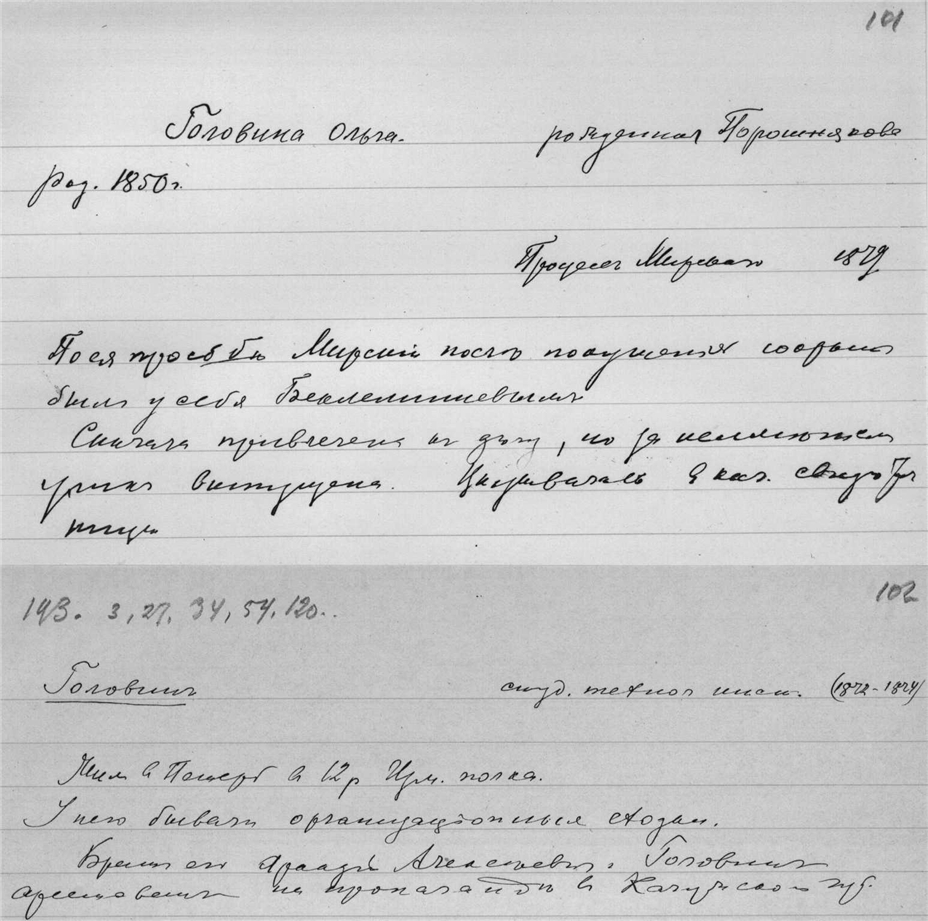 101
Головина Ольга. рожденная Порошнякова
род. 1850 г.
Процесс Мирского 1879
После просьбы Мирский после покушения
был у себя Беклемишевым
Сначала привлечена к делу, но за неимением
улик выпущена. 
102
193. 3, 27, 34, 54, 120..
Головин студ. технол инст. (1872-1874)
Жил в Петерб в 12 р Изм. полка.
У него бывали организационные сходки.
Брат его Аркадий Алексеевич Головин
арестован за пропаганду в Калужской губ.